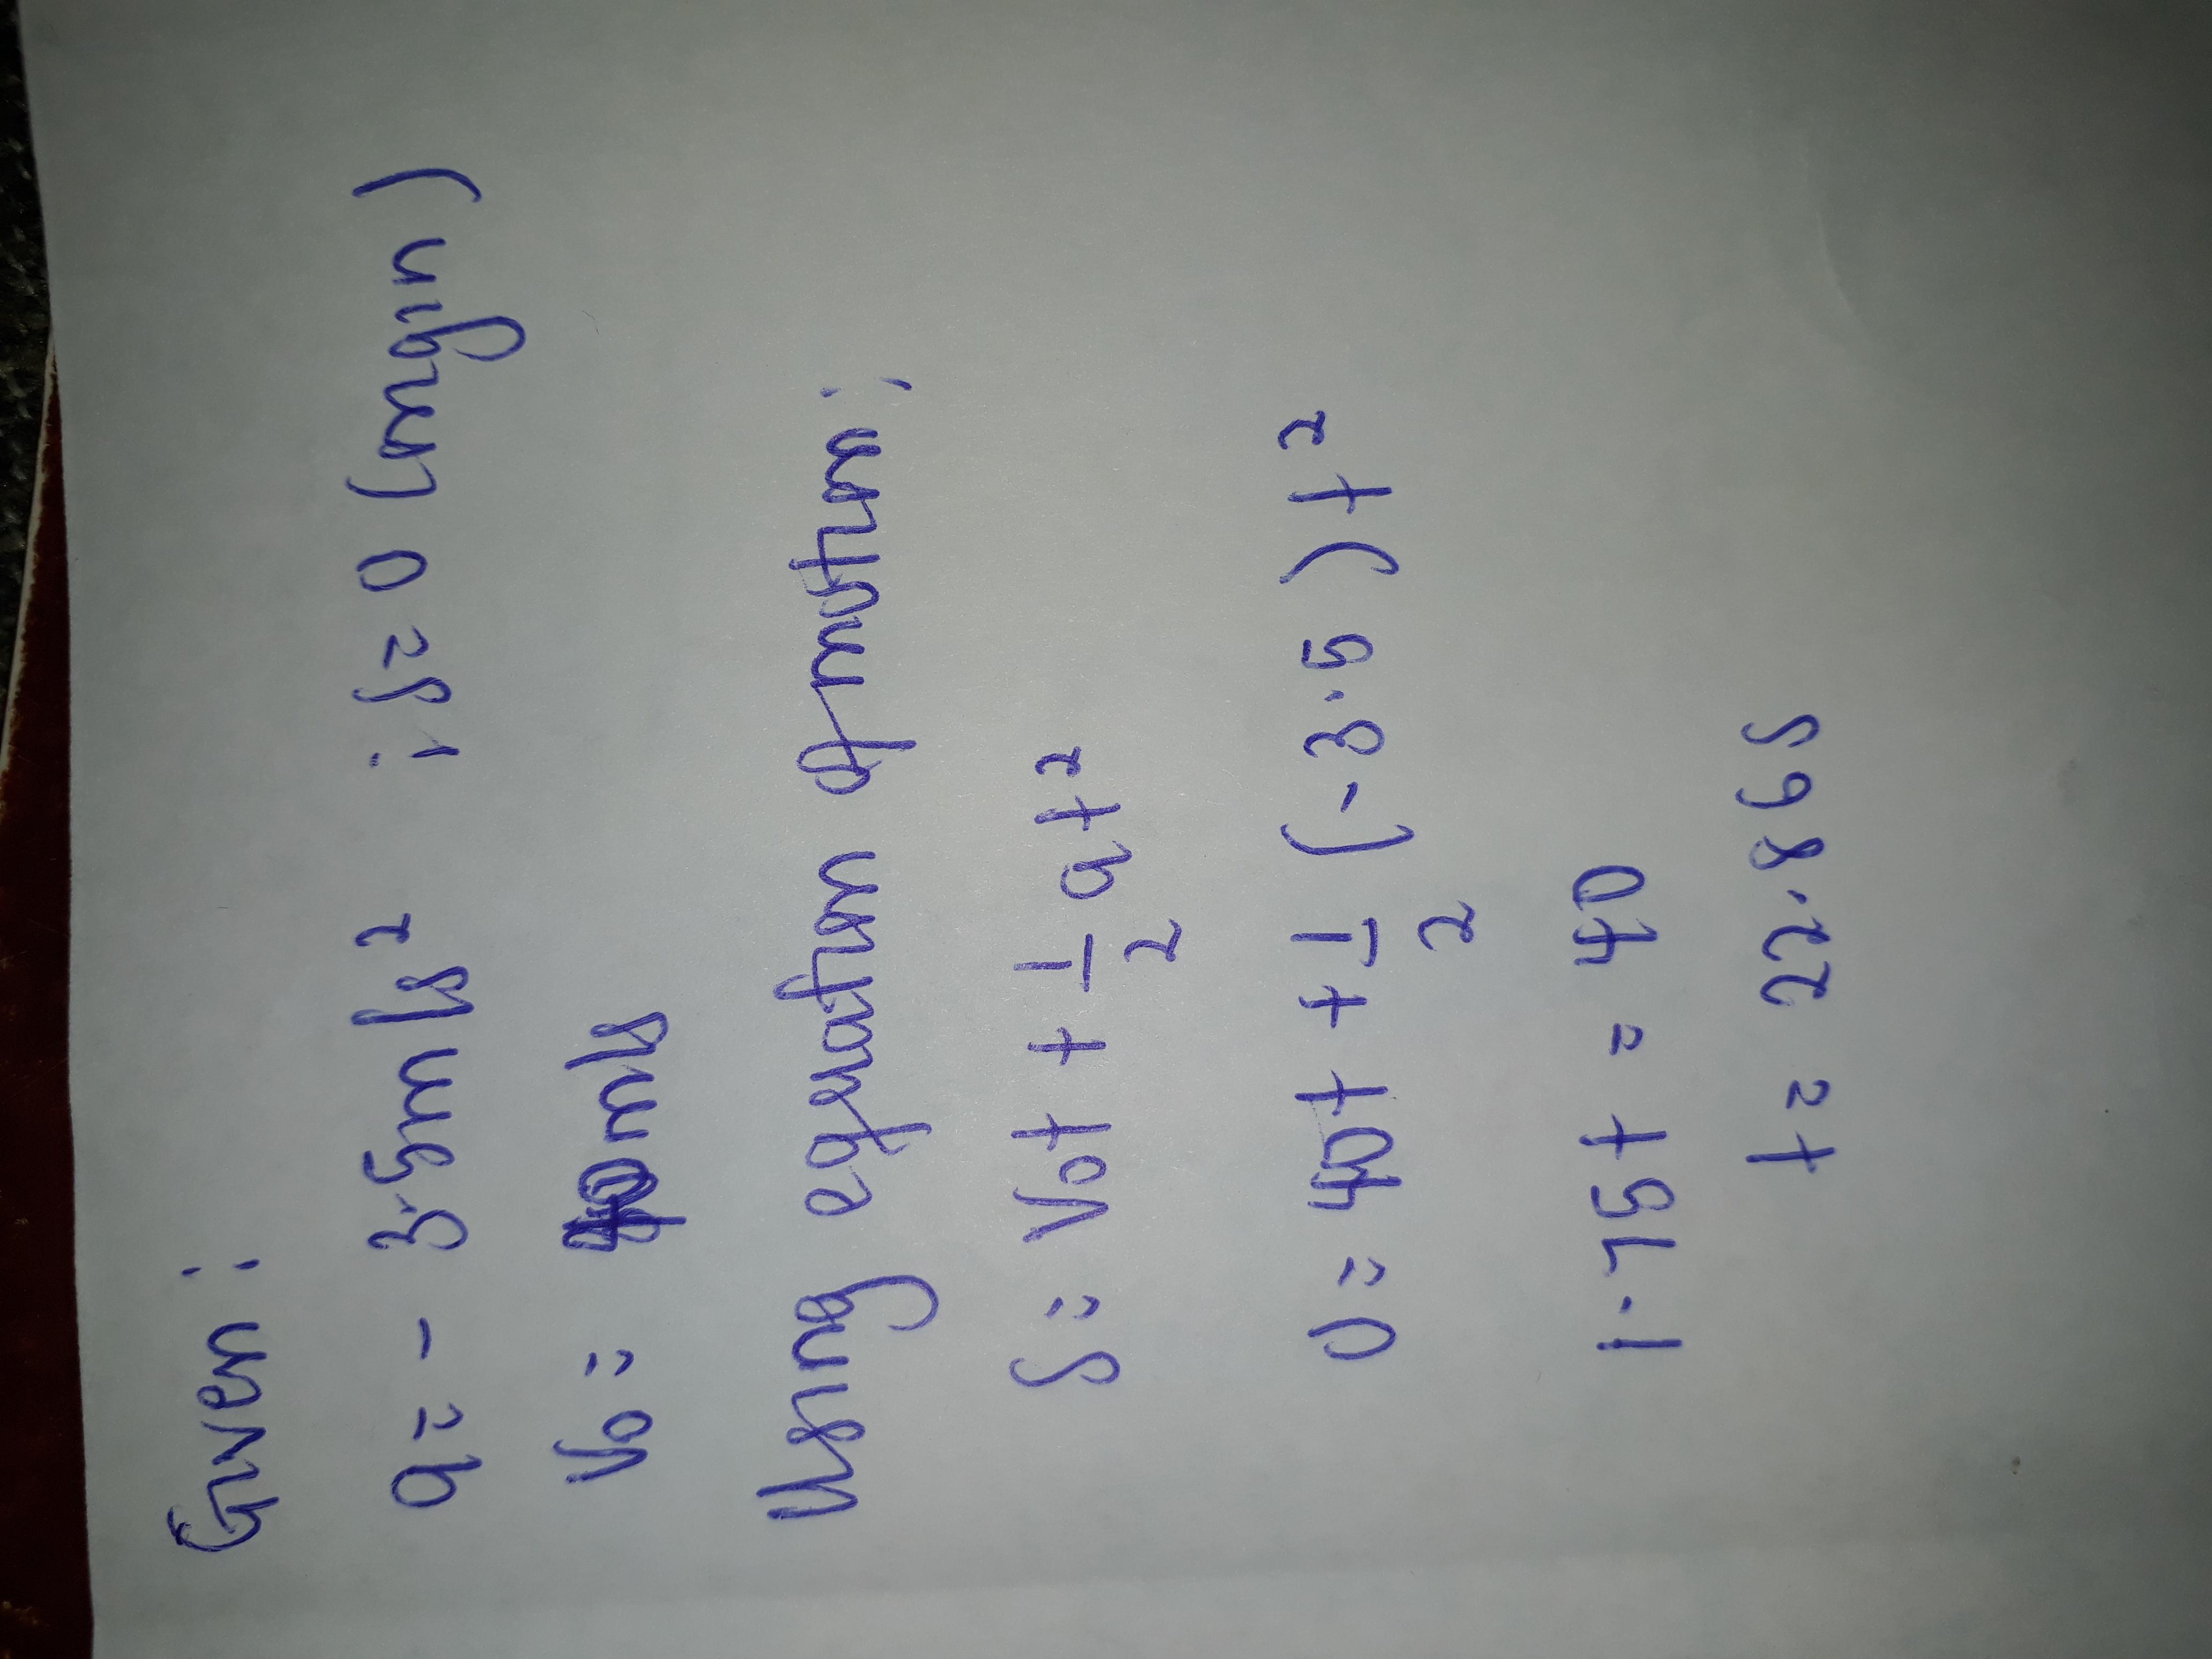 Given :
a = - 3.5m/s² ; s = 0 (origin)
V₀ = 40m/s
Using equation of motion :
S = V₀t + 1/2 at²
0 = 40t + 1/2 (-3.5) t²
1.75t = 40
t = 22.86s